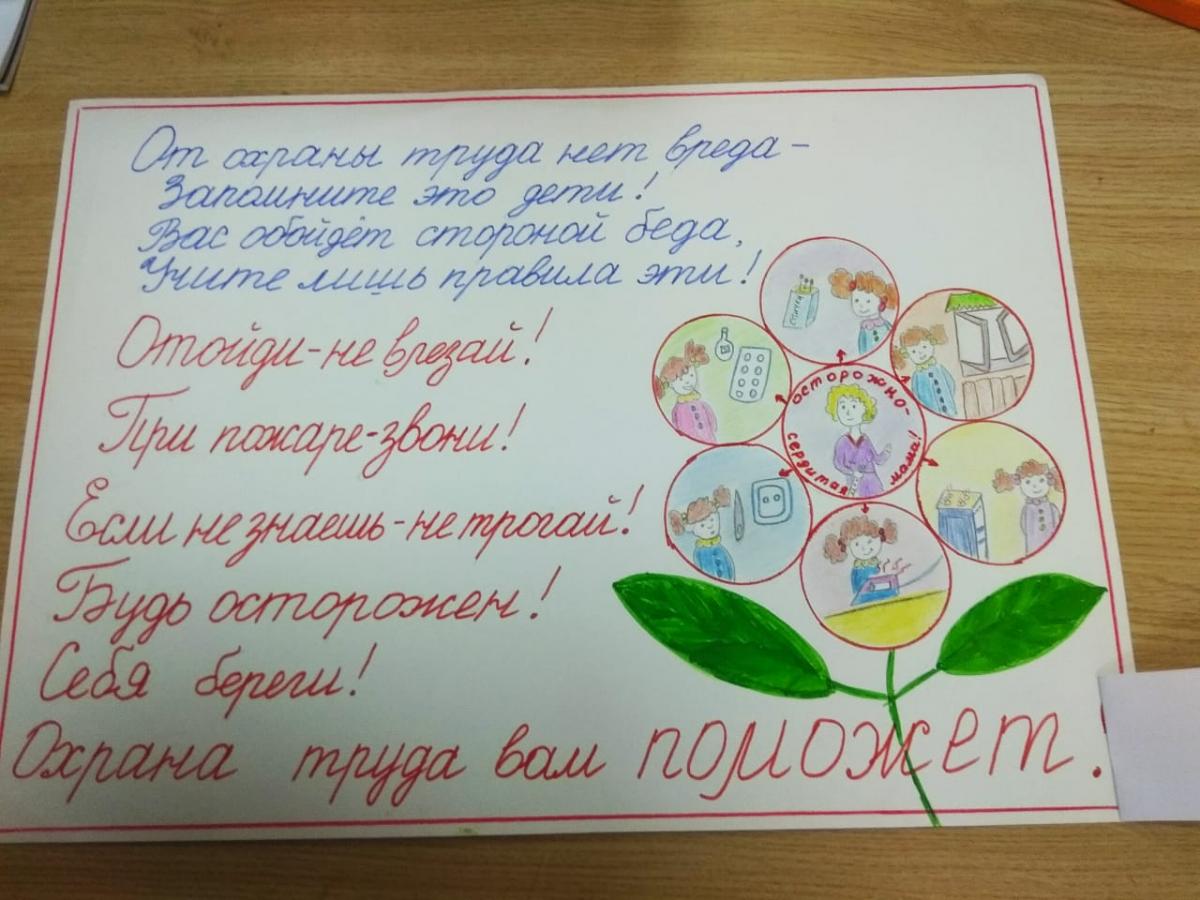 От охраны труда нет вреда -
Запомните это дети!
Вас обойдёт стороной беда,
Учите лишь правила эти!
Отойди-не врезай!
При пожаре-звони!
Если не знаешь-не трогай!
Будь осторожен!
Себя береги!
Охрана труда вам поможет.
спички
осторожно-
сердитая мама!